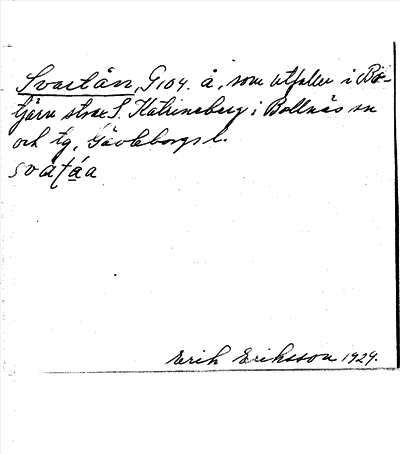 Svartån, G104. å, som utfaller i Rö-
tjärn strax S. Katrineberg i Bollnäs sn
och tg, Gävleborgs l.
svátáa
Erik Eriksson 1929.